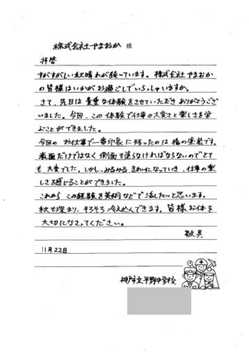 株式会社やまおか 様
拝啓
すがすがしい秋晴れが続いています。株式会社やまおか
の皆様はいかがお過ごしでいらっしゃいますか。
さて、先日は貴重な体験をさせていただきありがとうござ
いました。今回、この体験で仕事の大変さと楽しさを学
ぶことができました。
今回のお仕事で一番印象に残ったのは
表面だけではなく側面も塗らなければならないのでとて
も大変でした。しかし、みるみるきれいになっていき、仕事の楽
しさを感じることができました。
これから この経験を美術などで活したいと思います。
秋も深まり、そろそろ冷えこんできます。皆様お体を
大切になさってください。
敬具
11月22日
神戸市立平野中学校